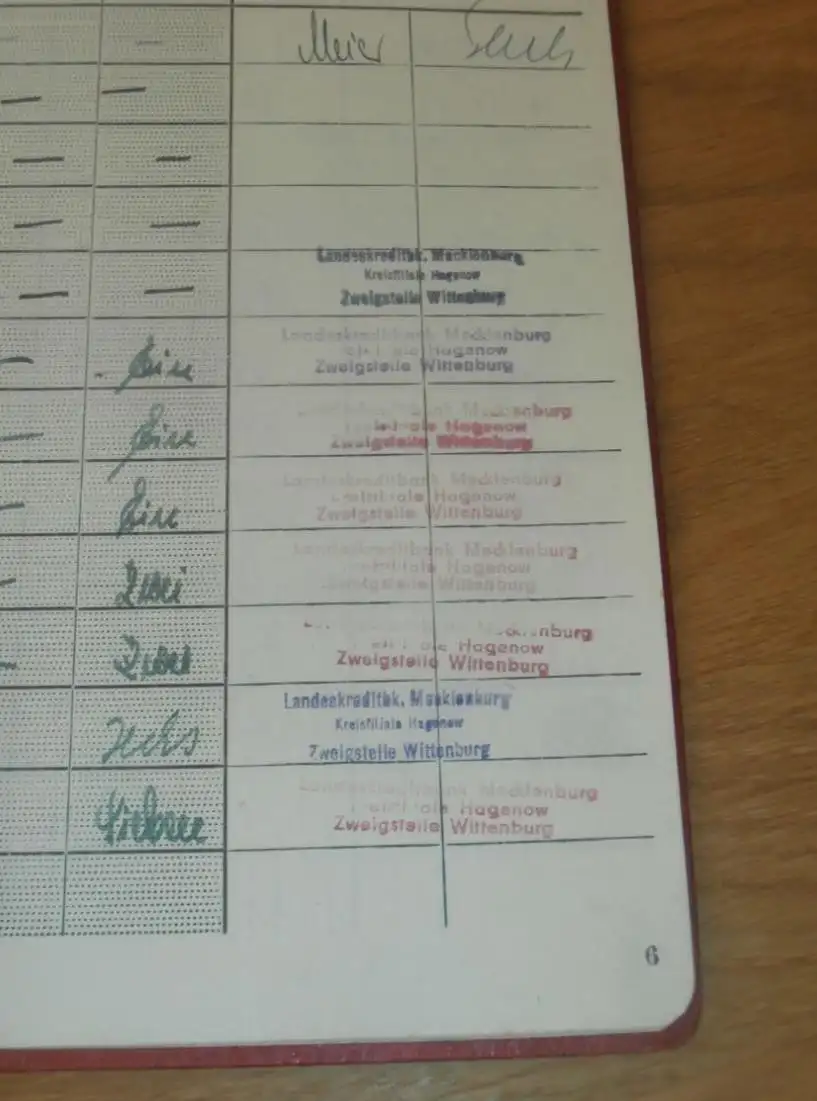 — — Meier
— —
— —
— —
Landeskreditbk. Mecklenburg
Kreisfiliale Hagenow
— — Zweigstelle Wittenburg
Landeskreditbank Mecklenburg
Hagenow
— Ein Zweigstelle Wittenburg
Mecklenburg
Hagenow
— Ein Zweigstelle Wittenburg
Landeskreditbank Mecklenburg
Hagenow
— Ein Zweigstelle Wittenburg
Landeskreditbank Mecklenburg
Hagenow
— Zwei Zweigstelle Wittenburg
Hagenow
— Zwei Zweigstelle Wittenburg
Landeskreditbk. Mecklenburg
Kreisfiliale Hagenow
Sechs Zweigstelle Wittenburg
Mecklenburg
Hagenow
Sieben Zweigstelle Wittenburg
6